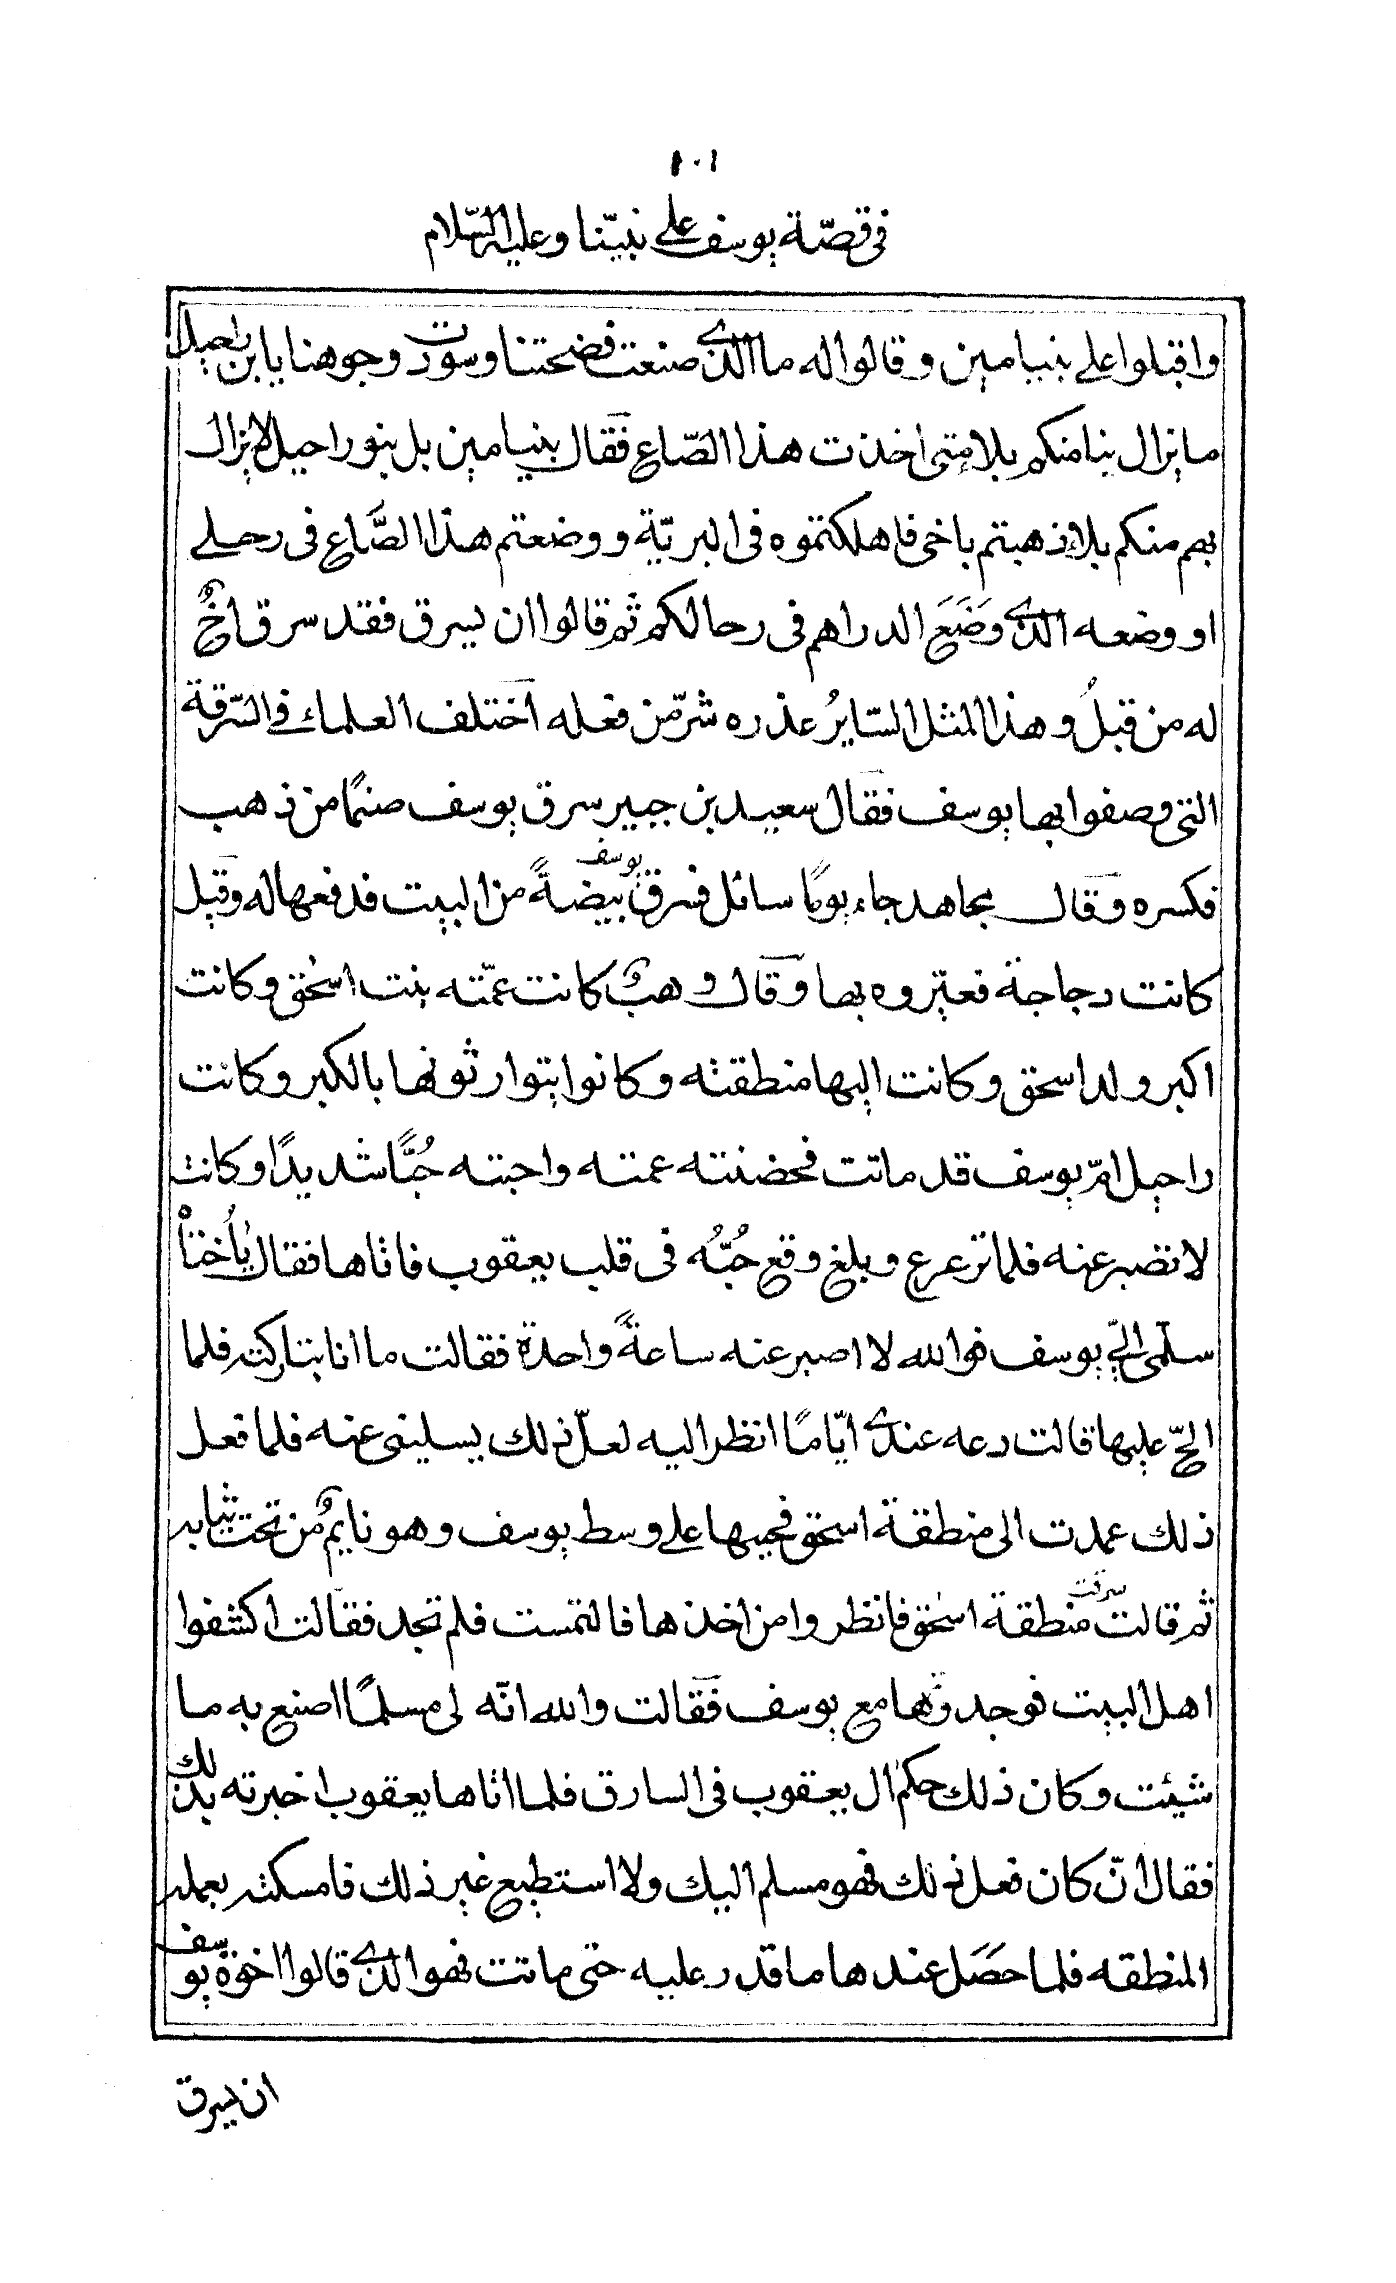 ١٠١
فى قصّة يوسف على نبيّنا وعليه السّلام
واقبلوا على بنيامين وقالوا له ما الذى صنعت فضحتنا وسوّدت وجوهنا يابن راحيل
ما يزال ينا منكم بلاء متى اخذت هذا الصّاع فقال بنيامين بل بنو راحيل لا يزال
بهم منكم بلاء ذهبتم باخى فاهلكتموه فى البريّة ووضعتم هذا الصَّاع فى رحلى
او وضعه الذى وَضَعَ الدراهم فى رحالكم ثم قالوا ان يسرق فقد سرق اخٌ
له من قبلُ وهذا المثل السّايرُ عذره شرّ من فعله اختلف العلماء فى السّرقة
التى وصفوا بها يوسف فقال سعيد بن جبير سرق يوسف صنمًا من ذهب
فكسره وقال مجاهد جاء يومًا سائل فسرق يوسف بيضةً من البيت فدفعها له وقيل
كانت دجاجة فعيّروه بها وقال وهبٌ كانت عمّته بنت اسحٰق وكانت
اكبر ولد اسحق وكانت اليها منطقته وكانوا يتوارثونها بالكبر وكانت
راحيل امّ يوسف قد ماتت فحضنته عمته واحبته حُبًّا شديدًا وكانت
لا تصبر عنه فلما ترعرع وبلغ وقع حُبُّه فى قلب يعقوب فاتاها فقال يٰأُختاْه
سلّمى الىّ يوسف فوالله لا اصبر عنه ساعةً واحدة فقالت ما انا بتاركته فلما
الحّ عليها قالت دعه عندى ايّامًا انظر اليه لعلّ ذلك يسلينى عنه فلما فعل
ذلك عمدت الى منطقة اسحق فحيبها على وسط يوسف وهو نايمٌ من تحت ثيابه
ثم قالت سرقت منطقة اسحٰق فانظروا من اخذها فالتمست فلم تجد فقالت اكشفوا
اهل البيت فوجدوها مع يوسف فقالت والله انّه لى مسلمًا اصنع به ما
شيئت وكان ذلك حكم ال يعقوب فى السارق فلما اتاها يعقوب اخبرته بذلك
فقال انّ كان فعل ذلك فهو مسلم اليك ولا استطيع غير ذلك فامسكته بعملة
المنطقه فلما حَصَل عندها ما قدر عليه حتى ماتت فهو الذى قالوا اخوة يوسف
ان يسرق